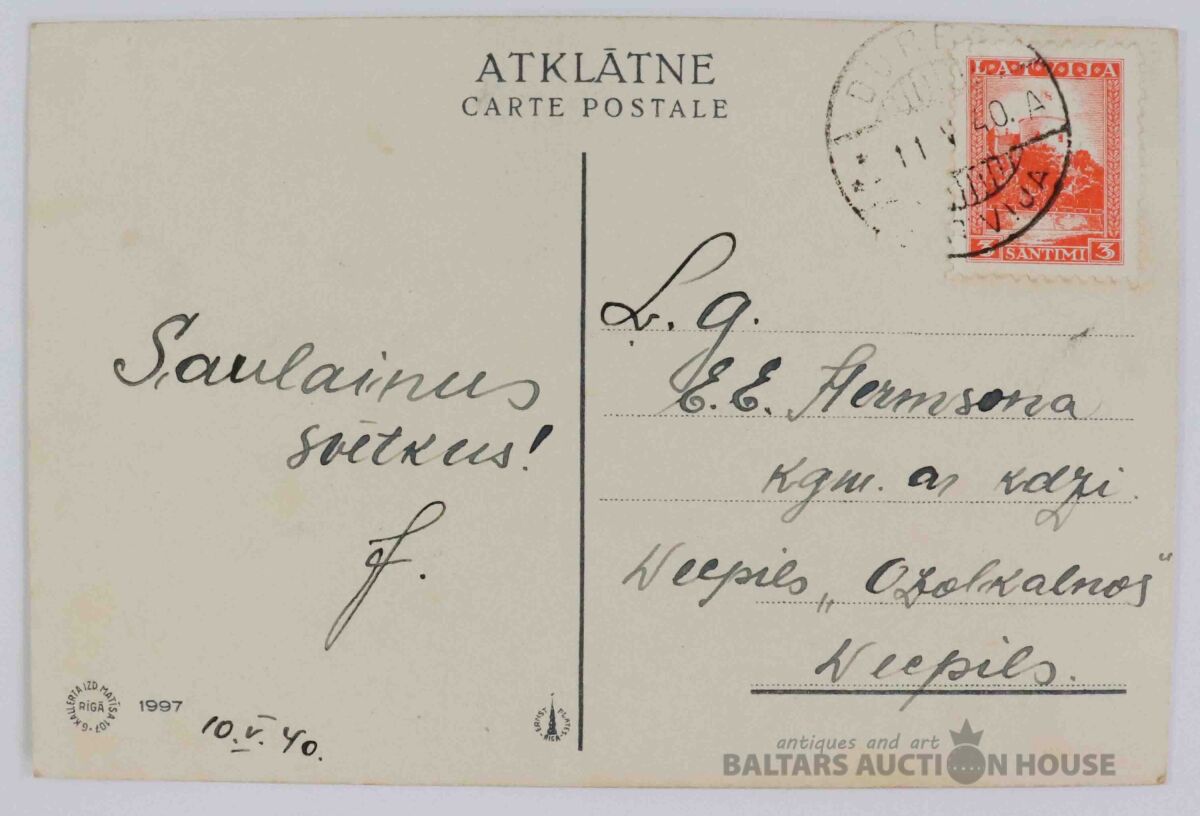 ATKLĀTNE
CARTE POSTALE
LATVIJA
11 V 40. A
3 SANTIMI 3
L. g.
E. E. Hermsona
kgm. ar kdzi.
Veepils „Ozolkalnos"
Veepils.
Saulainus
svētkus!
f.
G. KALLERTA IZD. MATĪSA 107
RĪGĀ
1997
10. V. 40.
ERNST PLATES
RIGA
antiques and art
BALTARS AUCTION HOUSE